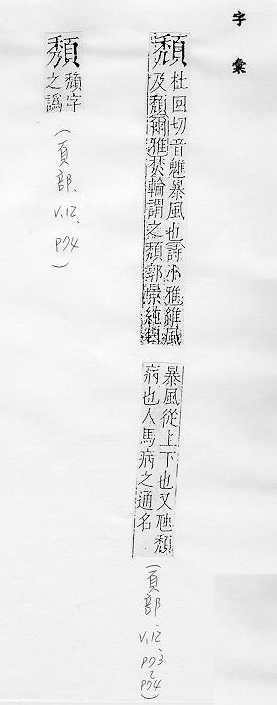 字彙
頽
杜回切音魋暴風也詩小雅維風
及頽爾雅焚輪謂之頽郭景純曰
暴風從上下也又虺頽
病也人馬病之通名
(頁部.V.12.P73~P74)
頽字
之譌
(頁部.V.12.P74)